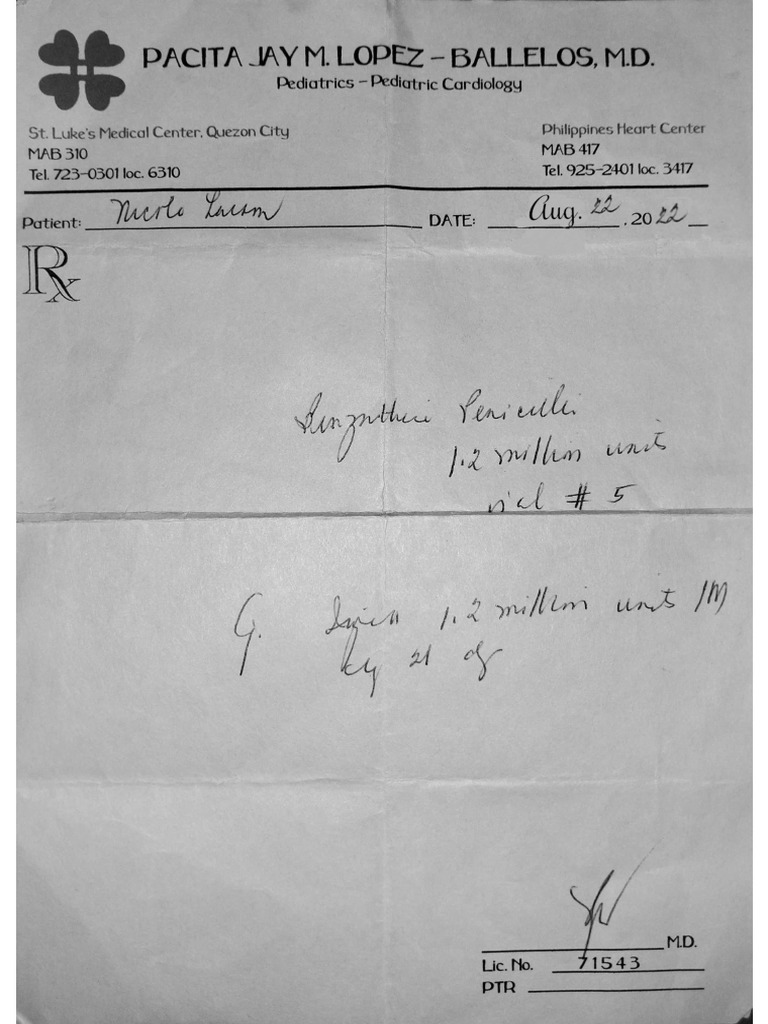 PACITA JAY M. LOPEZ – BALLELOS, M.D.
Pediatrics – Pediatric Cardiology
St. Luke's Medical Center, Quezon City
MAB 310
Tel. 723-0301 loc. 6310
Philippines Heart Center
MAB 417
Tel. 925-2401 loc. 3417
Patient: DATE: Aug. 22, 2022
Rx
Benzathine Penicillin
1.2 million units
vial # 5
1.2 million units IM
21
M.D.
Lic. No. 71543
PTR